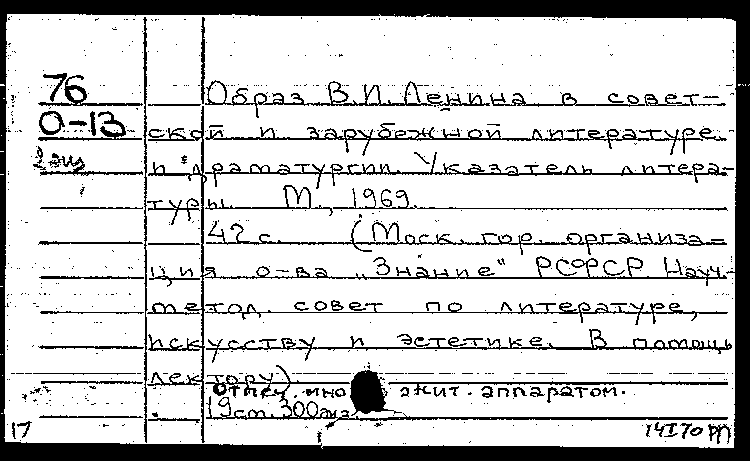 76
О-13
2 экз
Образ В.И. Ленина в совет-
ской и зарубежной литературе
и драматургии. Указатель литера-
туры. М., 1969.
42 с. (Моск. гор. организа-
ция о-ва „Знание" РСФСР. Науч.-
метод. совет по литературе,
искусству и эстетике. В помощь
лектору).
Отпеч. мно жит. аппаратом.
300 экз
17
14 I 70 РП